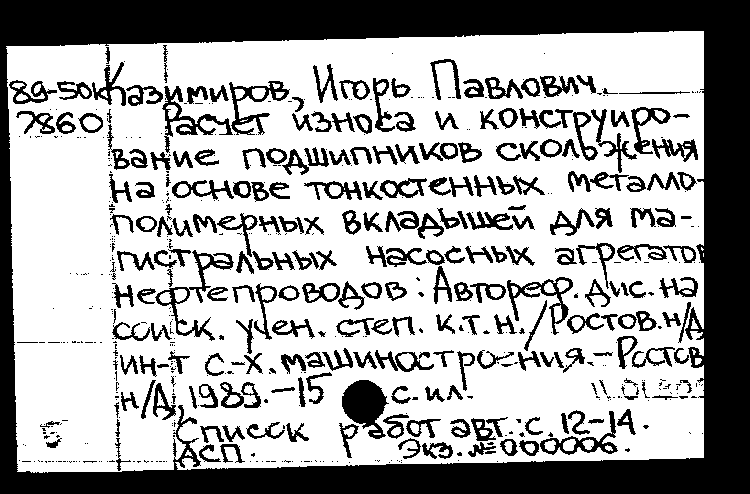 89-50к Казимиров, Игорь Павлович.
7860 Расчет износа и конструиро-
вание подшипников скольжения
на основе тонкостенных металло-
полимерных вкладышей для ма-
гистральных насосных агрегатов
нефтепроводов: Автореф. дис. на
соиск. учен. степ. к.т.н./Ростов.н/Д
ин-т с.-х. машиностроения.-Ростов
н/Д, 1989.-15 с. ил.
Б Список работ авт.: с. 12-14.
АСП. Экз. № 000006.